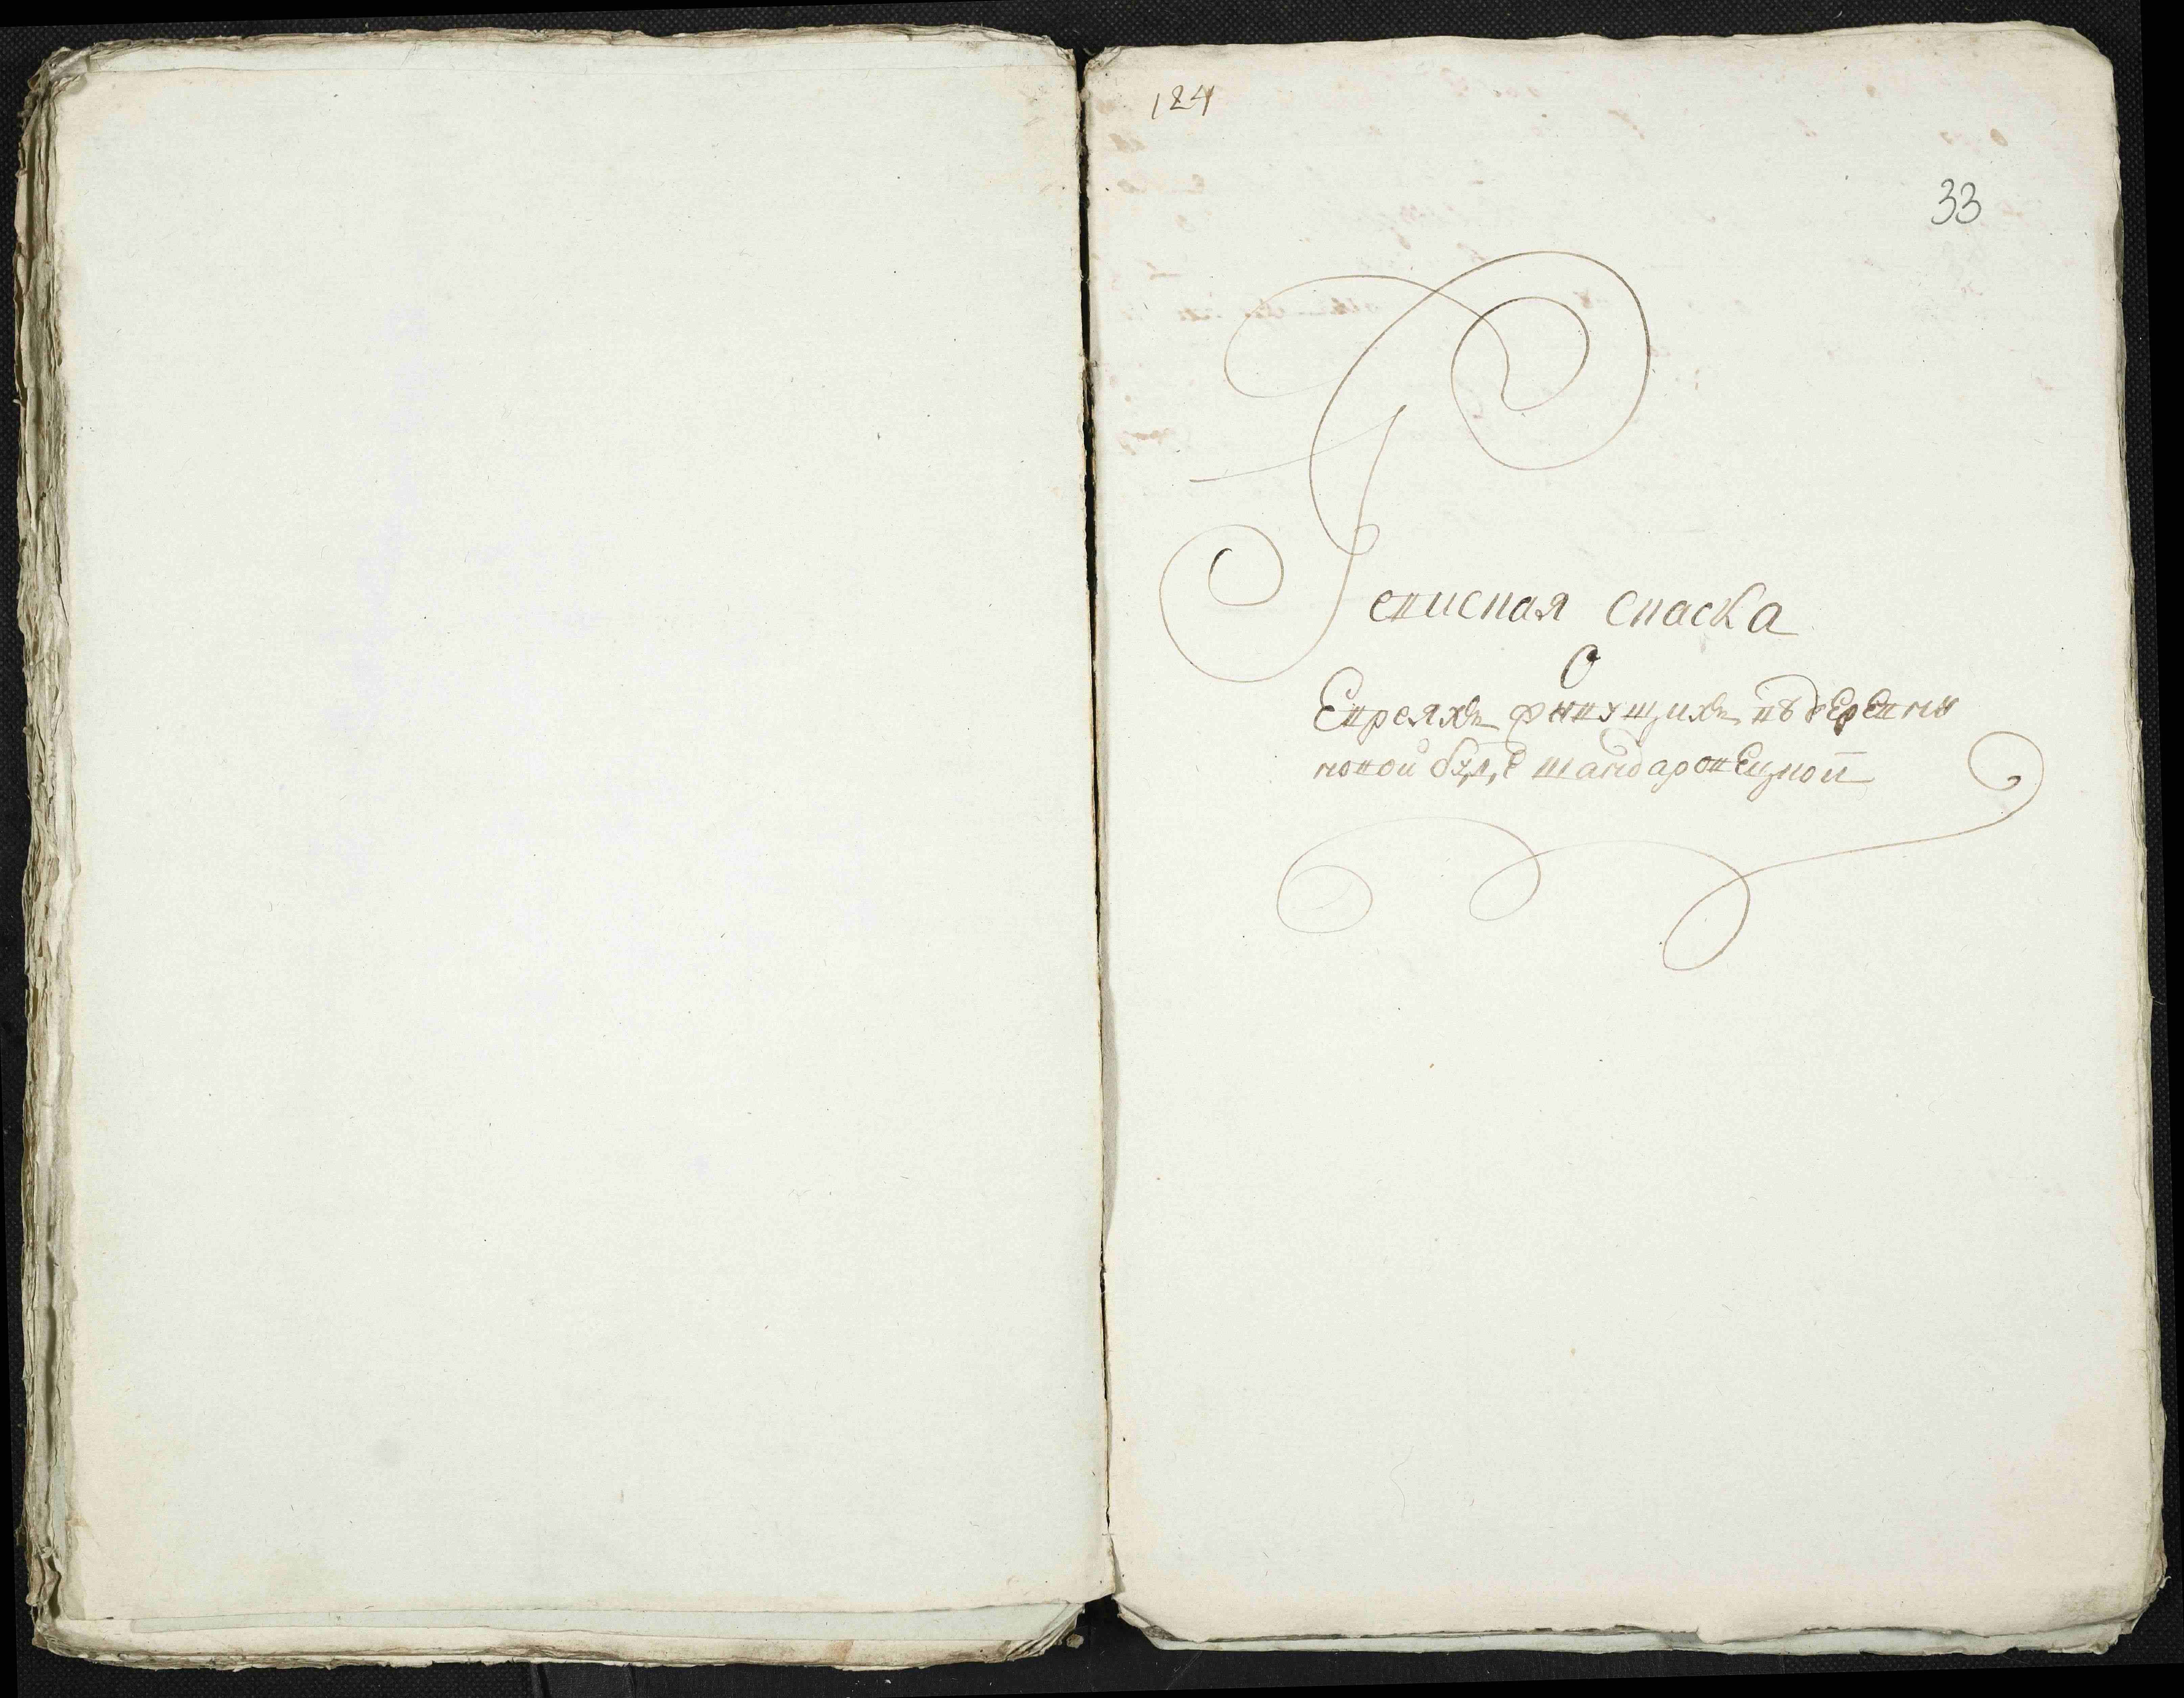 124
33
Ревиская скаска
О
Евреяхъ живущихъ въ деревни
новой буде шандаровецкой